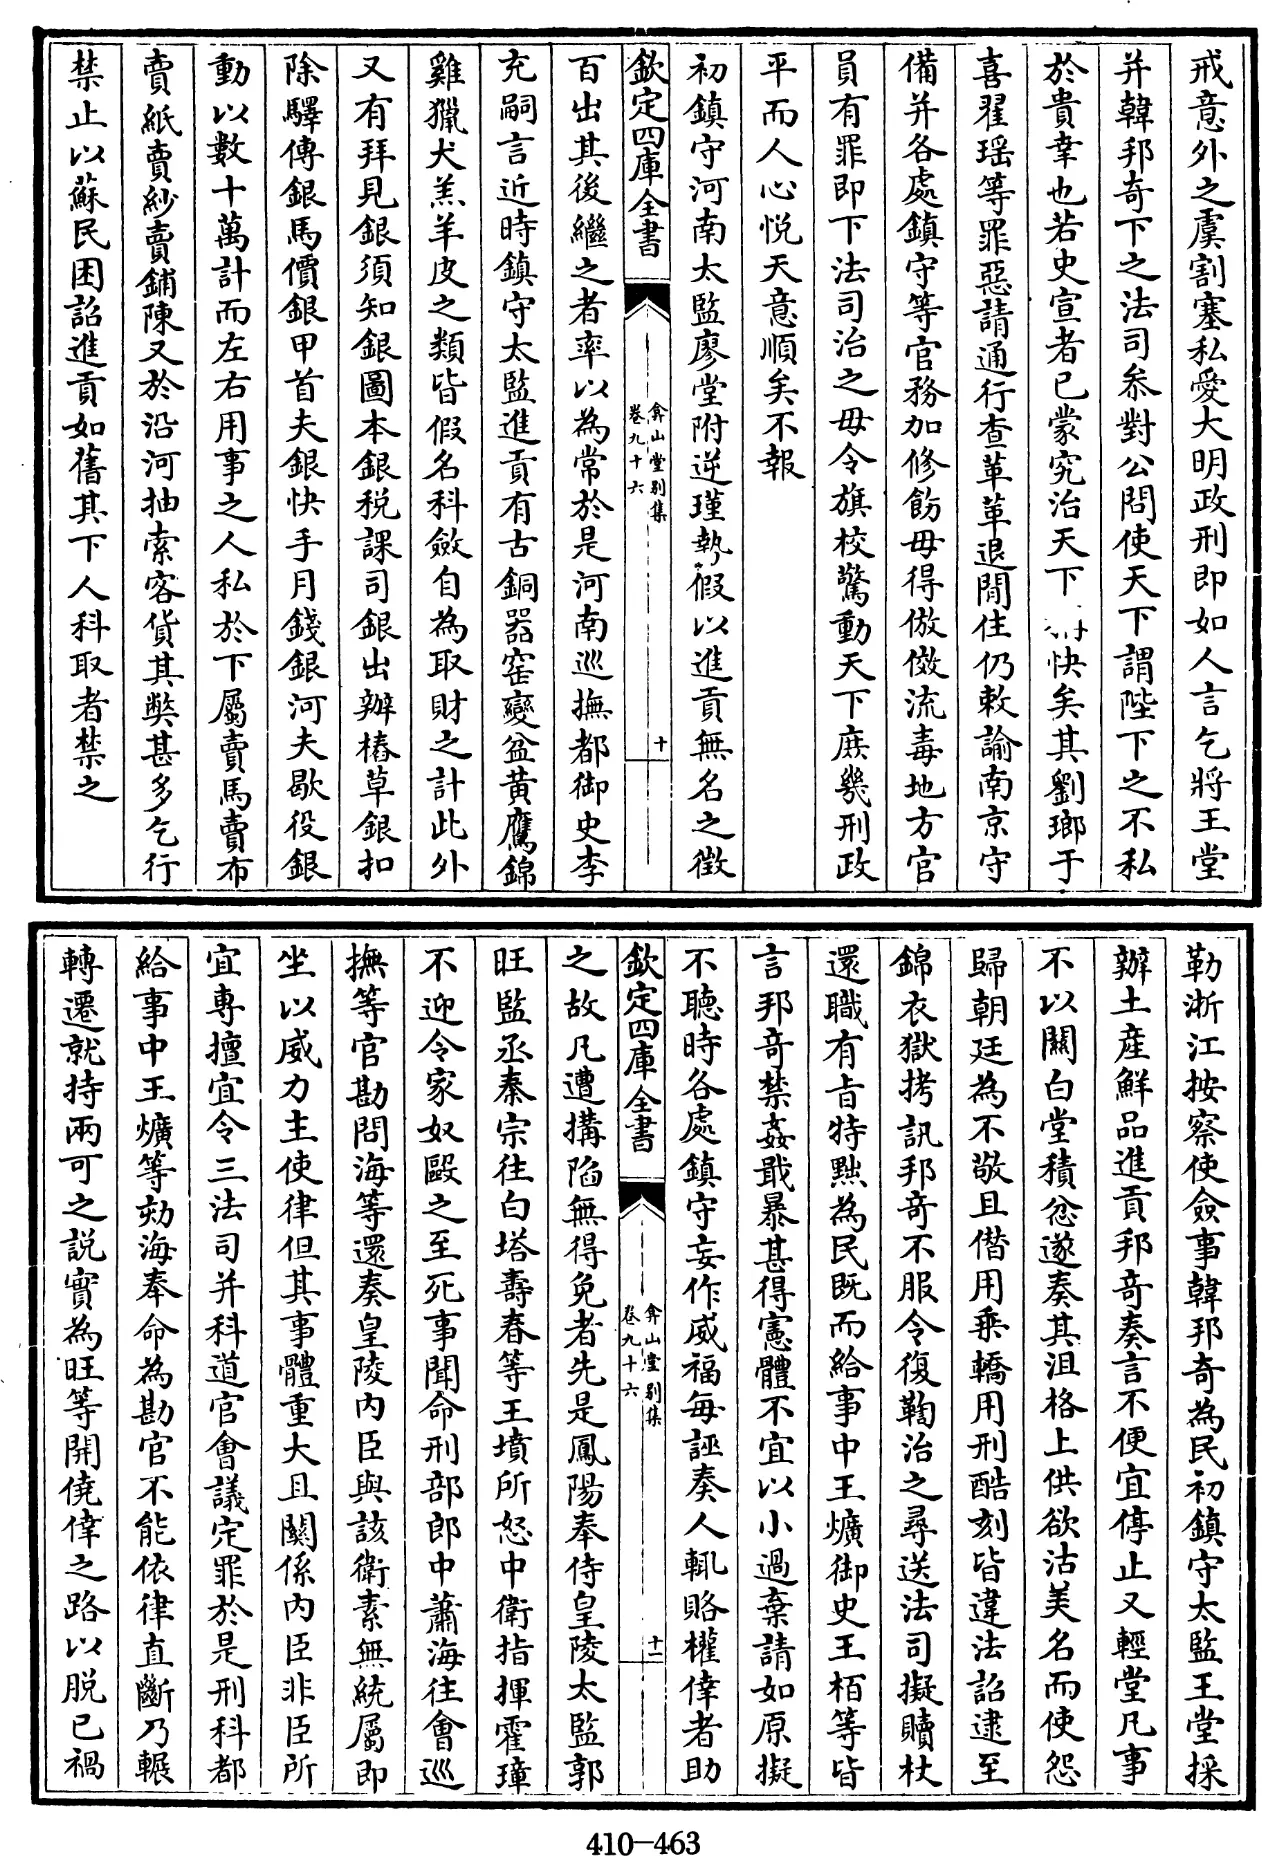 戒意外之虞割塞私愛大明政刑即如人言乞將王堂
并韓邦奇下之法司叅對公問使天下謂陛下之不私
於貴幸也若史宣者已蒙究治天下快矣其劉瑯于
喜翟瑶等罪惡請通行查革革退閒住仍敕諭南京守
備并各處鎮守等官務加修飭毋得倣傚流毒地方官
員有罪即下法司治之毋令旗校驚動天下庶幾刑政
平而人心悦天意順矣不報
初鎮守河南太監廖堂附逆瑾埶假以進貢無名之徵
欽定四庫全書
弇山堂别集
卷九十六
十
百出其後繼之者率以為常於是河南巡撫都御史李
充嗣言近時鎮守太監進貢有古銅器窑變盆黄鷹錦
雞獵犬羔羊皮之類皆假名科斂自為取財之計此外
又有拜見銀須知銀圖本銀税課司銀出辦樁草銀扣
除驛傳銀馬價銀甲首夫銀快手月錢銀河夫歇役銀
動以數十萬計而左右用事之人私於下屬賣馬賣布
賣紙賣紗賣鋪陳又於沿河抽索客貨其獘甚多乞行
禁止以蘇民困詔進貢如舊其下人科取者禁之
勒浙江按察使僉事韓邦奇為民初鎮守太監王堂採
辦土産鮮品進貢邦奇奏言不便宜停止又輕堂凡事
不以關白堂積忿遂奏其沮格上供欲沽美名而使怨
歸朝廷為不敬且僭用乗轎用刑酷刻皆違法詔逮至
錦衣獄拷訊邦奇不服令復鞫治之尋送法司擬贖杖
還職有旨特黜為民既而給事中王爌御史王栢等皆
言邦奇禁姦戢暴甚得憲體不宜以小過棄請如原擬
不聽時各處鎮守妄作威福毎誣奏人輒賂權倖者助
欽定四庫全書
弇山堂别集
卷九十六
十一
之故凡遭搆陷無得免者先是鳳陽奉侍皇陵太監郭
旺監丞秦宗往白塔壽春等王墳所怒中衛指揮霍璋
不迎令家奴毆之至死事聞命刑部郎中蕭海往會巡
撫等官勘問海等還奏皇陵内臣與該衛素無統屬即
坐以威力主使律但其事體重大且關係内臣非臣所
宜專擅宜令三法司并科道官會議定罪於是刑科都
給事中王爌等劾海奉命為勘官不能依律直斷乃輾
轉遷就持兩可之説實為旺等開僥倖之路以脱已禍
410-463